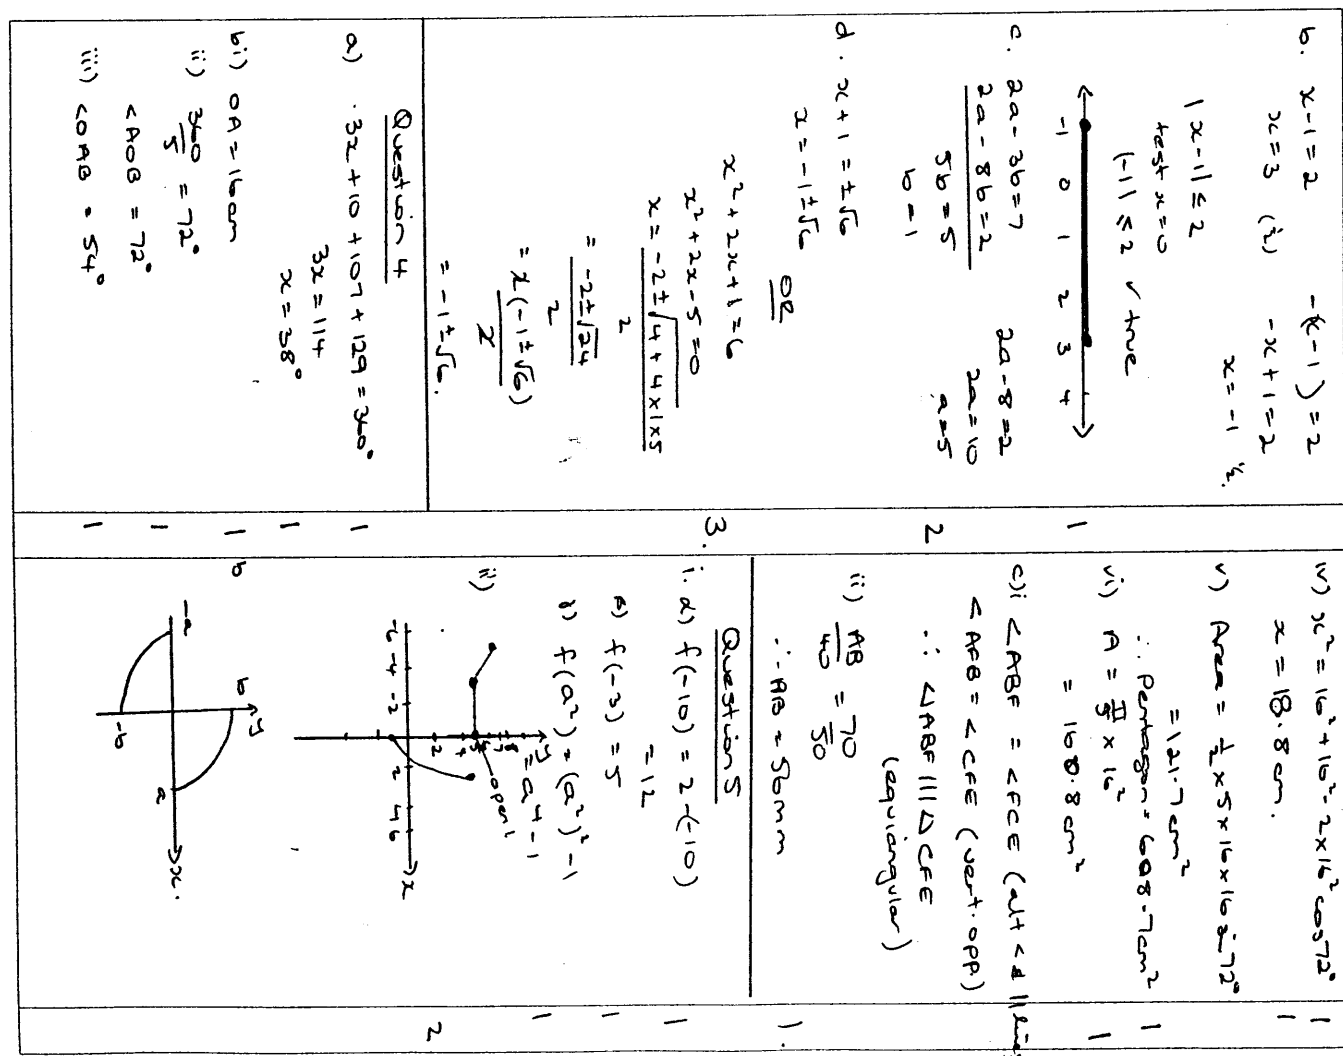 b. x-1=2    -(x-1)=2
x=3 (½)    -x+1=2
x=-1 ½.
|x-1| ≤ 2
test x=0
|-1| ≤ 2 ✓ true
-1 0 1 2 3 4
1
c. 2a-3b=7    2a-8=2
2a-8b=2    2a=10
5b=5    a=5
b=1
2
d. x+1=±√6
x=-1±√6
OR
x²+2x+1=6
x²+2x-5=0
x=-2±√4+4×1×5
2
=-2±√24
2
=2(-1±√6)
2
=-1±√6.
3.
Question 4
a) 3x+10+107+129=360°
1
3x=114
x=38°
1
bi) OA=16cm
1
ii) 360 = 72°
5
<AOB = 72°
1
iii) <OAB = 54°
1
iv) x²=16²+16²-2×16²cos72°
1
x=18.8cm.
1
v) Area=½×5×16×16sin72°
=121.7cm²
∴ Pentagon=608.7cm²
1
vi) A=π/5×16²
=160.8cm²
1
c)i <ABF = <FCE (alt < || lines
<AFB=<CFE (vert.opp)
∴ △ABF|||△CFE
(equiangular)
ii) AB = 70
40 50
∴ AB=56mm
1.
Question 5
i. α) f(-10)=2-(-10)
=12
1
β) f(-3)=5
1
γ) f(a²)=(a²)²-1
=a⁴-1
1
ii)
y
8
7
open
5
4
2
-6 -4 -2 2 4 6 x
2
b
y
b
-a a x.
-b